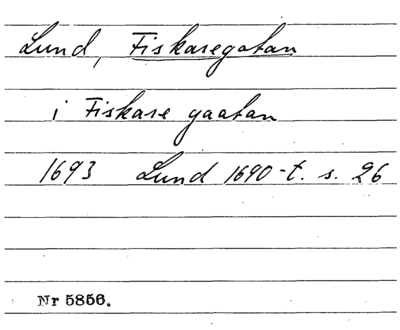 Lund, Fiskaregatan
i Fiskare gaatan
1693 Lund 1690-t. s. 26
Nr 5856.